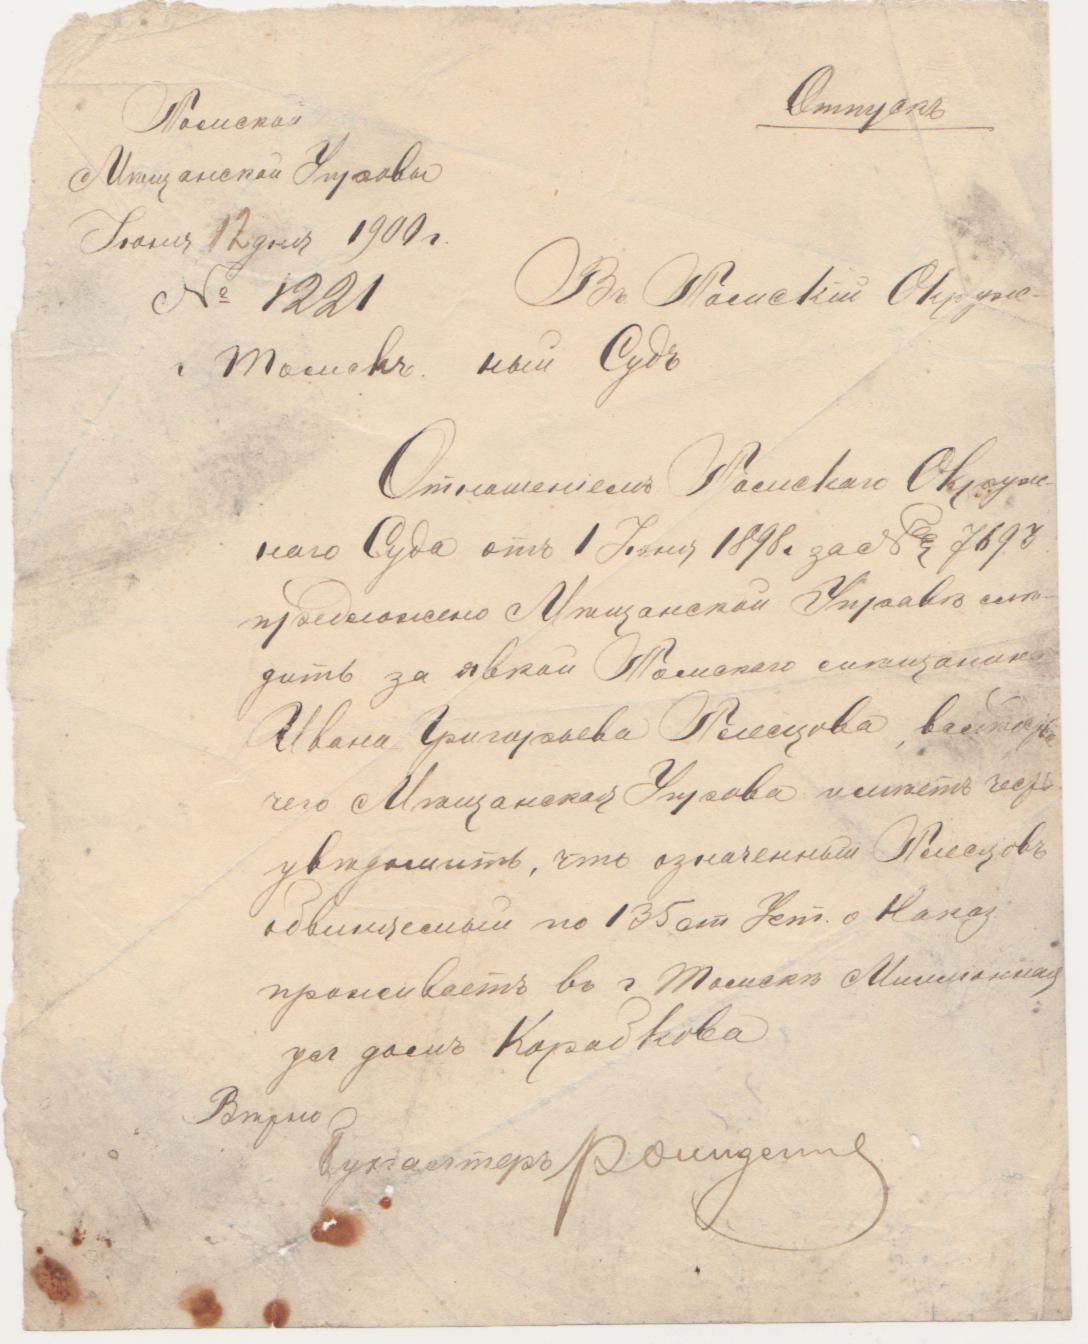 Отпускъ
Томской
Мѣщанской Управы
Іюня 12 дня 1900 г.
№ 1221
Въ Томскій Окруж-
г Томскъ. ный Судъ
Отношеніемъ Томскаго Окруж-
наго Суда отъ 1 Іюня 1898 г за № 7693
предложено Мѣщанской Управѣ слѣ-
дить за явкой Томскаго мѣщанина
Ивана Григорьева Плесцова, вслѣдствіе
чего Мѣщанская Управа имѣетъ честь
увѣдомить, что означенный Плесцовъ
обвиняемый по 135 ст Уст. о Наказ
проживаетъ въ г Томскѣ Милліонная
ул домъ Коробкова
Вѣрно
Бухгалтеръ